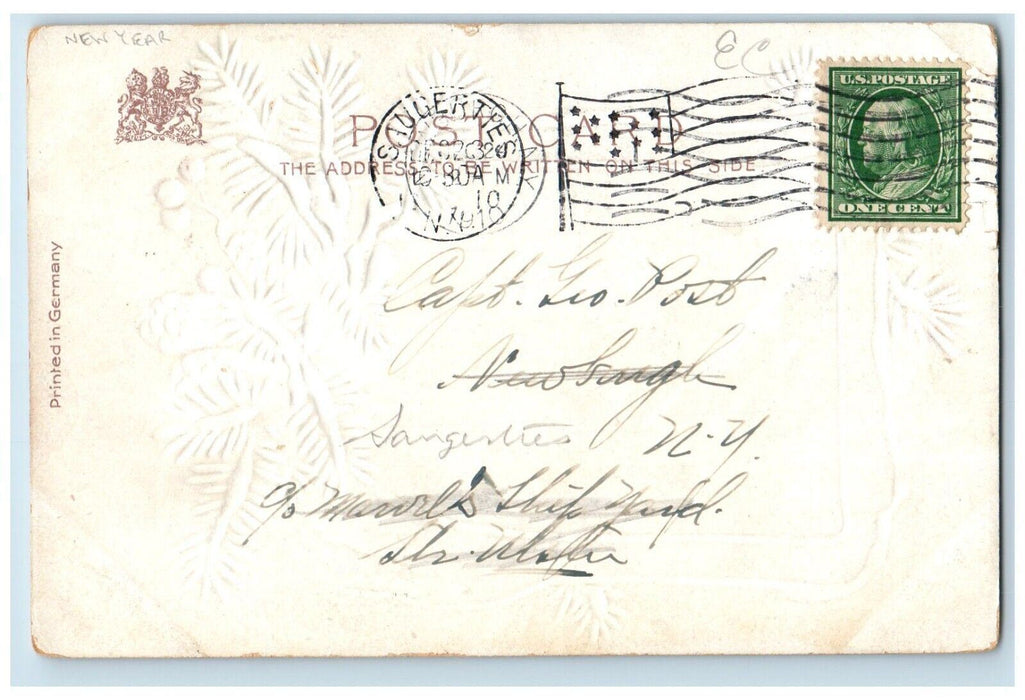 NEW YEAR
EC
U.S. POSTAGE
ONE CENT
SAUGERTIES
N.Y.
POST CARD
THE ADDRESS TO BE WRITTEN ON THIS SIDE
Printed in Germany
Capt. Geo. Post
Newburgh
Saugerties N.Y.
c/o Marvel's Ship Yard.
Str. Ulster